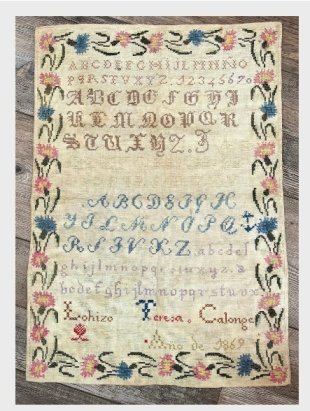 ABCDEFGHIJLMNÑO
PQRSTUVXYZ.1234567890
ABCDEFGHI
KLMNOPQR
STUXYZ.J
ABCDEFGH
YJLMNOPQ
RSTVXZ abcdef
ghijlmnopqrstuxyz.a
bcdefghijlmnopqrstuvx
Lohizo Teresa Calonge
Año de 1869